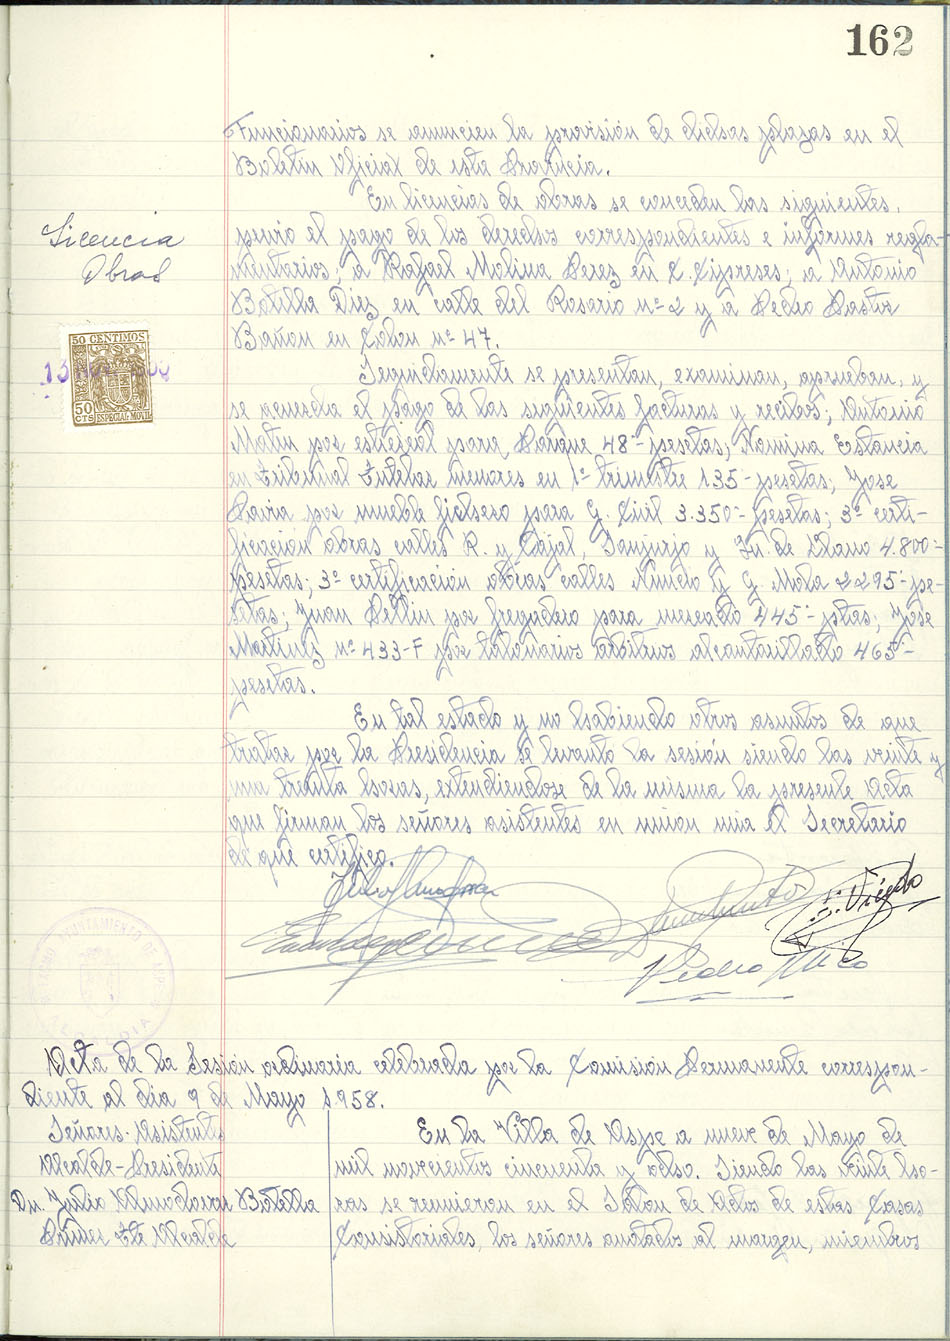 162
Funcionarios se anuncien la provisión de dichas plazas en el
Boletin Oficial de esta Provincia.
En licencias de obras se conceden las siguientes,
Licencia
Obras
previo el pago de los derechos correspondientes e informes regla-
mentarios; a Rafael Molina Perez en C. Cipreses; a Antonio
Botella Diez en calle del Rosario nº 2 y a Pedro Pastor
Bañon en Colon nº 47.
50 CENTIMOS
50 CTS ESPECIAL MOVIL
13
Seguidamente se presentan, examinan, aprueban, y
se acuerda el pago de las siguientes facturas y recibos; Antonio
Matin por estiercol para Parque 48'- pesetas; Nomina Estancia
en Tribunal Tutelar menores en 1º trimestre 135- pesetas; Jose
Pavia por mueble fichero para G. Civil 3.350'- pesetas; 3ª certi-
ficación obras calles R. y Cajal, Sanjurjo y de Llano 4.800=
pesetas; 3ª certificación obras calles Nuncio y G. Mola 2295'- pe-
setas; Juan Pellin por fregadero para mercado 445'- ptas; Jose
Martinez nº 433-F por talonarios arbitrios alcantarillado 465'-
pesetas.
En tal estado y no habiendo otros asuntos de que
tratar por la Presidencia se levanto la sesión siendo las veinte y
una treinta horas, extendiendose de la misma la presente Acta
que firman los señores asistentes en union mia el Secretario
de que certifico.
Pedro Mico
AYUNTAMIENTO DE ASPE
ALCALDIA
Acta de la Sesión ordinaria celebrada por la Comisión Permanente correspon-
diente al dia 9 de Mayo 1958.
Señores Asistentes
Alcalde-Presidente
Dn. Julio Almodovar Botella
Primer Tte Alcalde
En la Villa de Aspe a nueve de Mayo de
mil novecientos cincuenta y ocho. Siendo las veinte ho-
ras se reunieron en el Salon de Actos de estas Casas
Consistoriales, los señores anotados al margen, miembros